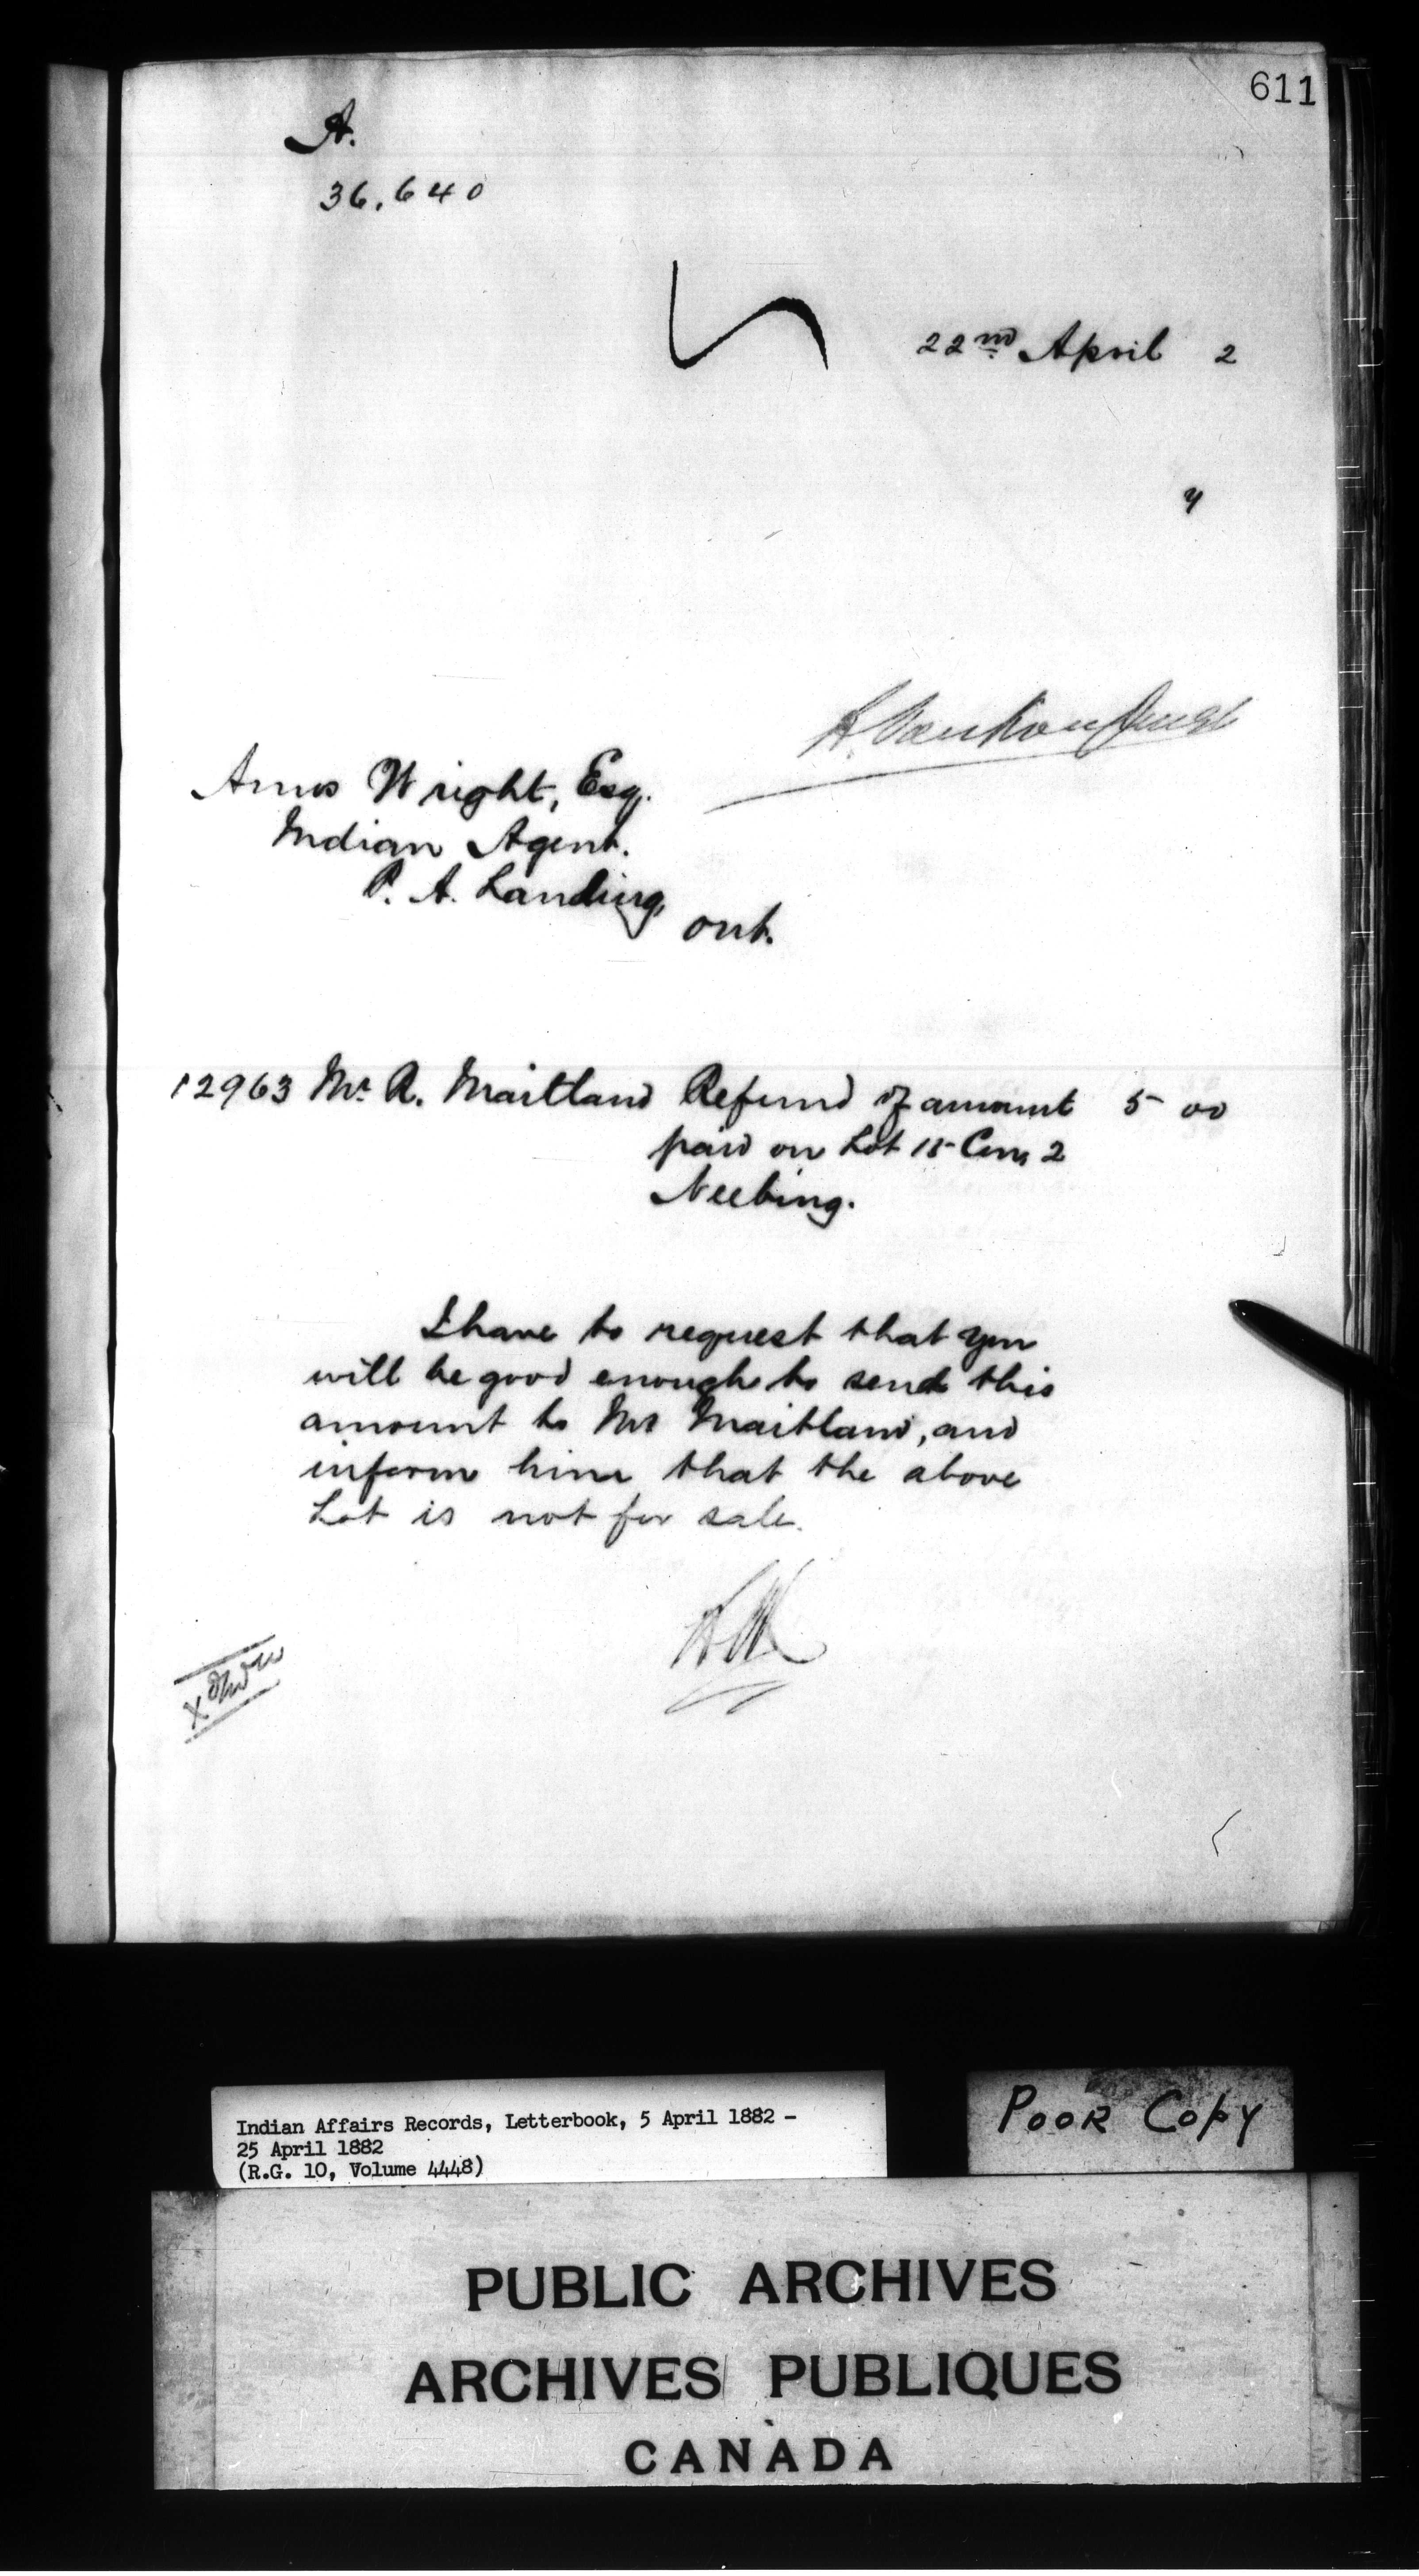 611
A.
36,640
22nd April 2
y
L. VanKoughnet
Amos Wright, Esq.
Indian Agent.
P. A. Landing,
Ont.
12963 Mr. R. Maitland Refund of amount 5 00
paid on Lot 15 Con 2
Neebing.
I have to request that you
will be good enough to send this
amount to Mr Maitland, and
inform him that the above
Lot is not for sale.
Indian Affairs Records, Letterbook, 5 April 1882 -
25 April 1882
(R.G. 10, Volume 4448)
POOR COPY
PUBLIC ARCHIVES
ARCHIVES PUBLIQUES
CANADA